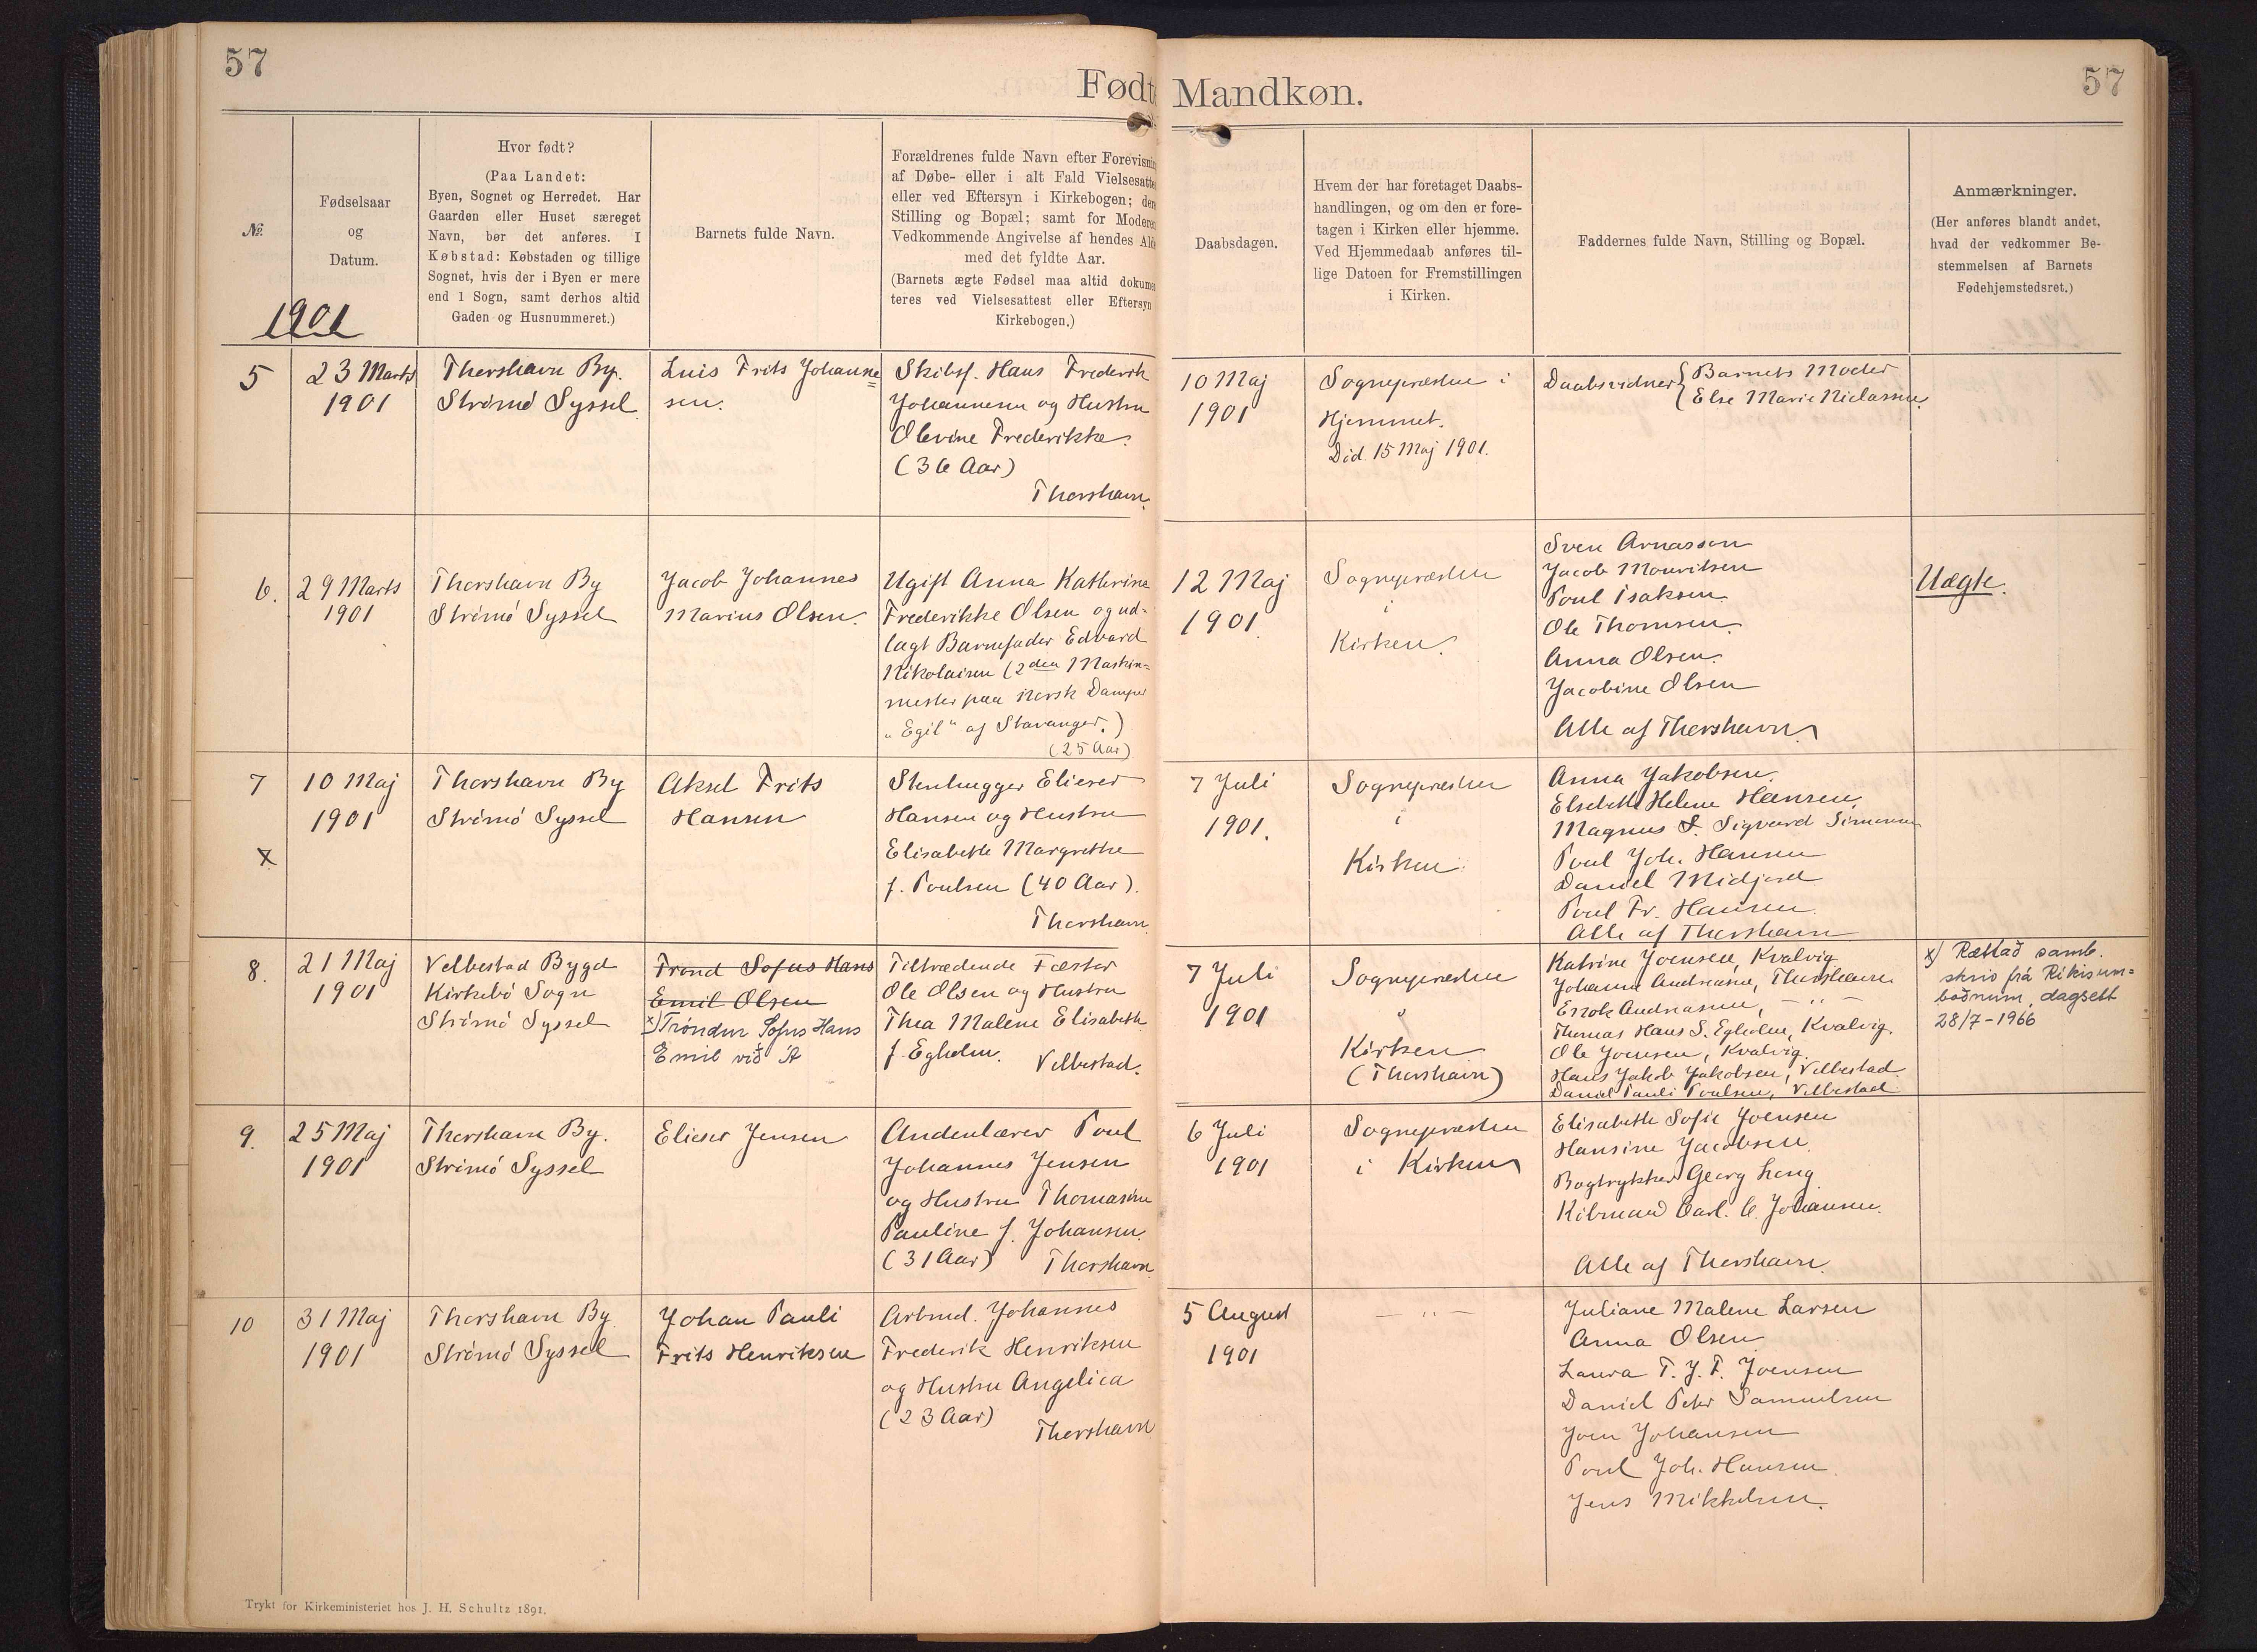 57
Fødte Mandkøn.
57
№
Fødselsaar
og
Datum.
1901
Hvor født?
(Paa Landet:
Byen, Sognet og Herredet. Har
Gaarden eller Huset særeget
Navn, bør det anføres. I
Købstad: Købstaden og tillige
Sognet, hvis der i Byen er mere
end 1 Sogn, samt derhos altid
Gaden og Husnummeret.)
Barnets fulde Navn.
Forældrenes fulde Navn efter Forevisnin
af Døbe- eller i alt Fald Vielsesatte
eller ved Eftersyn i Kirkebogen; dere
Stilling og Bopæl; samt for Moderen
Vedkommende Angivelse af hendes Ald
med det fyldte Aar.
(Barnets ægte Fødsel maa altid dokume
teres ved Vielsesattest eller Eftersyn
Kirkebogen.)
Daabsdagen.
Hvem der har foretaget Daabs-
handlingen, og om den er fore-
tagen i Kirken eller hjemme.
Ved Hjemmedaab anføres til-
lige Datoen for Fremstillingen
i Kirken.
Faddernes fulde Navn, Stilling og Bopæl.
Anmærkninger.
(Her anføres blandt andet,
hvad der vedkommer Be-
stemmelsen af Barnets
Fødehjemstedsret.)
5
23 Marts
1901
Thorshavn By.
Strömö Syssel
Luis Frits Johanne
sen.
Skibsf. Hans Frederik
Johannesen og Hustru
Olevine Frederikke.
(36 Aar)
Thorshavn.
10 Maj
1901
Sognepræsten i
Hjemmet.
Död. 15 Maj 1901.
Daabsvidner
Barnets Moder
Else Marie Niclassen.
6.
29 Marts
1901
Thorshavn By
Strömö Syssel
Jacob Johannes
Marius Olsen.
Ugift Anna Kathrine
Frederikke Olsen og ud-
lagt Barnefader Edvard
Nikolaisen (2den Maskin=
mester paa norsk Damper
„Egil" af Stavanger.)
(25 Aar)
12 Maj
1901.
Sognepræsten
i
Kirken.
Sven Arnasson
Jacob Mouritsen
Poul Isaksen.
Ole Thomsen.
Anna Olsen.
Jacobine Olsen
Alle af Thorshavn.
Uægte.
7
x
10 Maj
1901
Thorshavn By
Strömö Syssel
Aksel Frits
Hansen
Stenhugger Elieser
Hansen og Hustru
Elisabeth Margrethe
f. Poulsen (40 Aar).
Thorshavn
7 Juli
1901.
Sognepræsten
i
Kirken.
Anna Jakobsen.
Elsebeth Helene Hansen.
Magnus S. Sigvard Simonsen
Poul Joh. Hansen
Daniel Midjord
Poul Fr. Hansen.
Alle af Thorshavn
8.
21 Maj
1901
Velbestad Bygd
Kirkebö Sogn
Strömö Syssel
Trond Sofus Hans
Emil Olsen
x) Tróndur Sofus Hans
Emil við Á
Tiltrædende Fæster
Ole Olsen og Hustru
Thea Malene Elisabeth
f. Egholm. Velbestad.
7 Juli
1901
Sognepræsten
i
Kirken
(Thorshavn)
Katrine Joensen, Kvalvig
Johanna Andreasine, Thorshavn
Enok Andreasen, — " —
Thomas Hans S. Egholm, Kvalvig.
Ole Joensen, Kvalvig.
Hans Jakob Jakobsen, Velbestad.
Daniel Pauli Poulsen, Velbestad
x) Rættað samb.
skriv frá Ríkisum=
boðnum, dagsett
28/7-1966
9.
25 Maj
1901
Thorshavn By.
Strömö Syssel
Elieser Jensen
Andenlærer Poul
Johannes Jensen
og Hustru Thomasine
Pauline f. Johansen.
(31 Aar) Thorshavn
6 Juli
1901
Sognepræsten
i Kirken
Elisabeth Sofie Joensen
Hansine Jacobsen.
Bogtrykker Georg Long
Köbmand Carl. C. Johansen.
Alle af Thorshavn.
10
31 Maj
1901
Thorshavn By
Strömö Syssel
Johan Pauli
Frits Henriksen
Arbmd. Johannes
Frederik Henriksen
og Hustru Angelica
(23 Aar)
Thorshavn
5 August
1901
— " —
Juliane Malene Larsen
Anna Olsen
Laura T. J. F. Joensen
Daniel Peter Samuelsen
Joen Johansen
Poul Joh. Hansen
Jens Mikkelsen.
Trykt for Kirkeministeriet hos J. H. Schultz 1891.